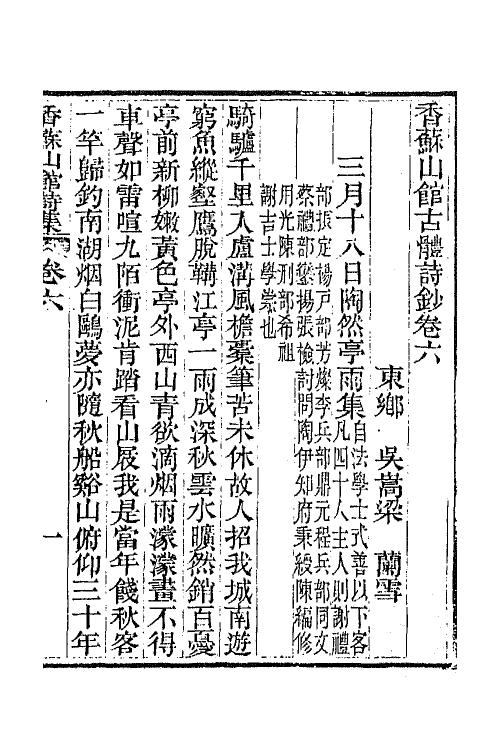 香蘇山館古體詩鈔卷六
東鄉 吳嵩梁 蘭雪
三月十八日陶然亭雨集自法學士式善以下客
凡四十人主人則謝禮
部張定揚戶部芳燦李兵部鼎元程兵部同文
蔡禮部鑾揚張檢討問陶伊知府秉綬陳編修
用光陳刑部希祖
謝吉士學崇也
騎驢千里入盧溝風檐橐筆苦未休故人招我城南遊
窮魚縱壑鷹脫鞲江亭一雨成深秋雲水曠然銷百憂
亭前新柳嫩黃色亭外西山青欲滴烟雨濛濛畫不得
車聲如雷喧九陌衝泥肯踏看山屐我是當年餞秋客
一竿歸釣南湖烟白鷗夢亦隨秋船谿山俯仰三十年
香蘇山館詩集 卷六 一